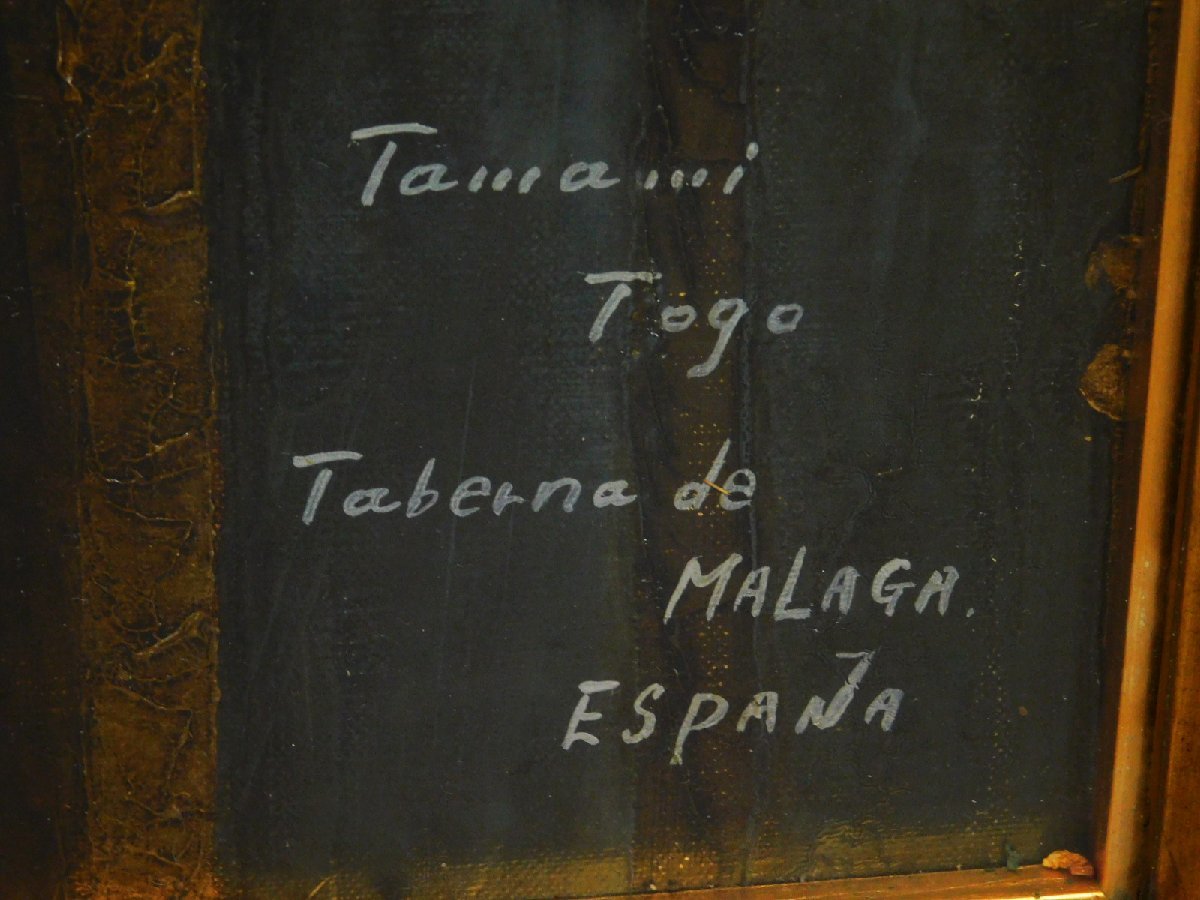 Tamami
Togo
Taberna de
MALAGA.
ESPAÑA